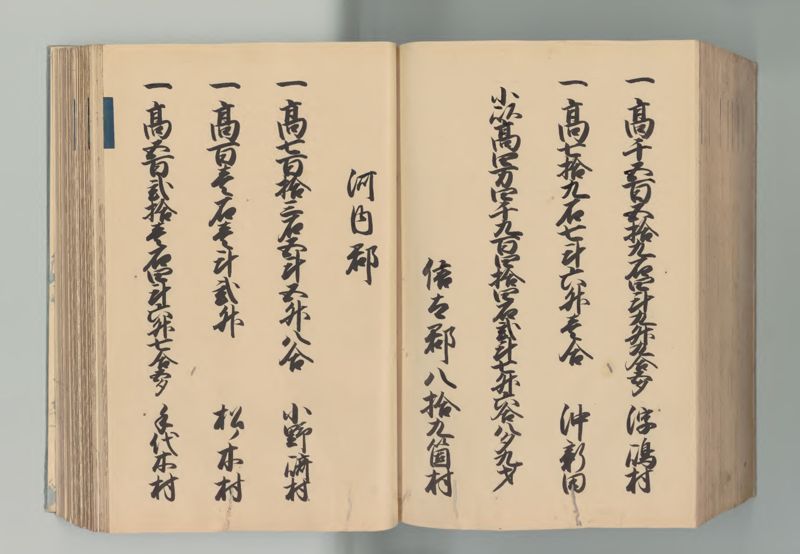 一高千五百五拾九石四斗九升九合壱夕 浮嶋村
一高七拾九石七斗六升壱合 沖新田
小以高四万四千九百四拾四石弐斗七升六合八夕九才
信太郡八拾九箇村
河内郡
一高七百拾三石五斗五升八合 小野崎村
一高百壱石壱斗弐升 松ノ木村
一高五百弐拾壱石四斗六升七合壱夕 手代木村